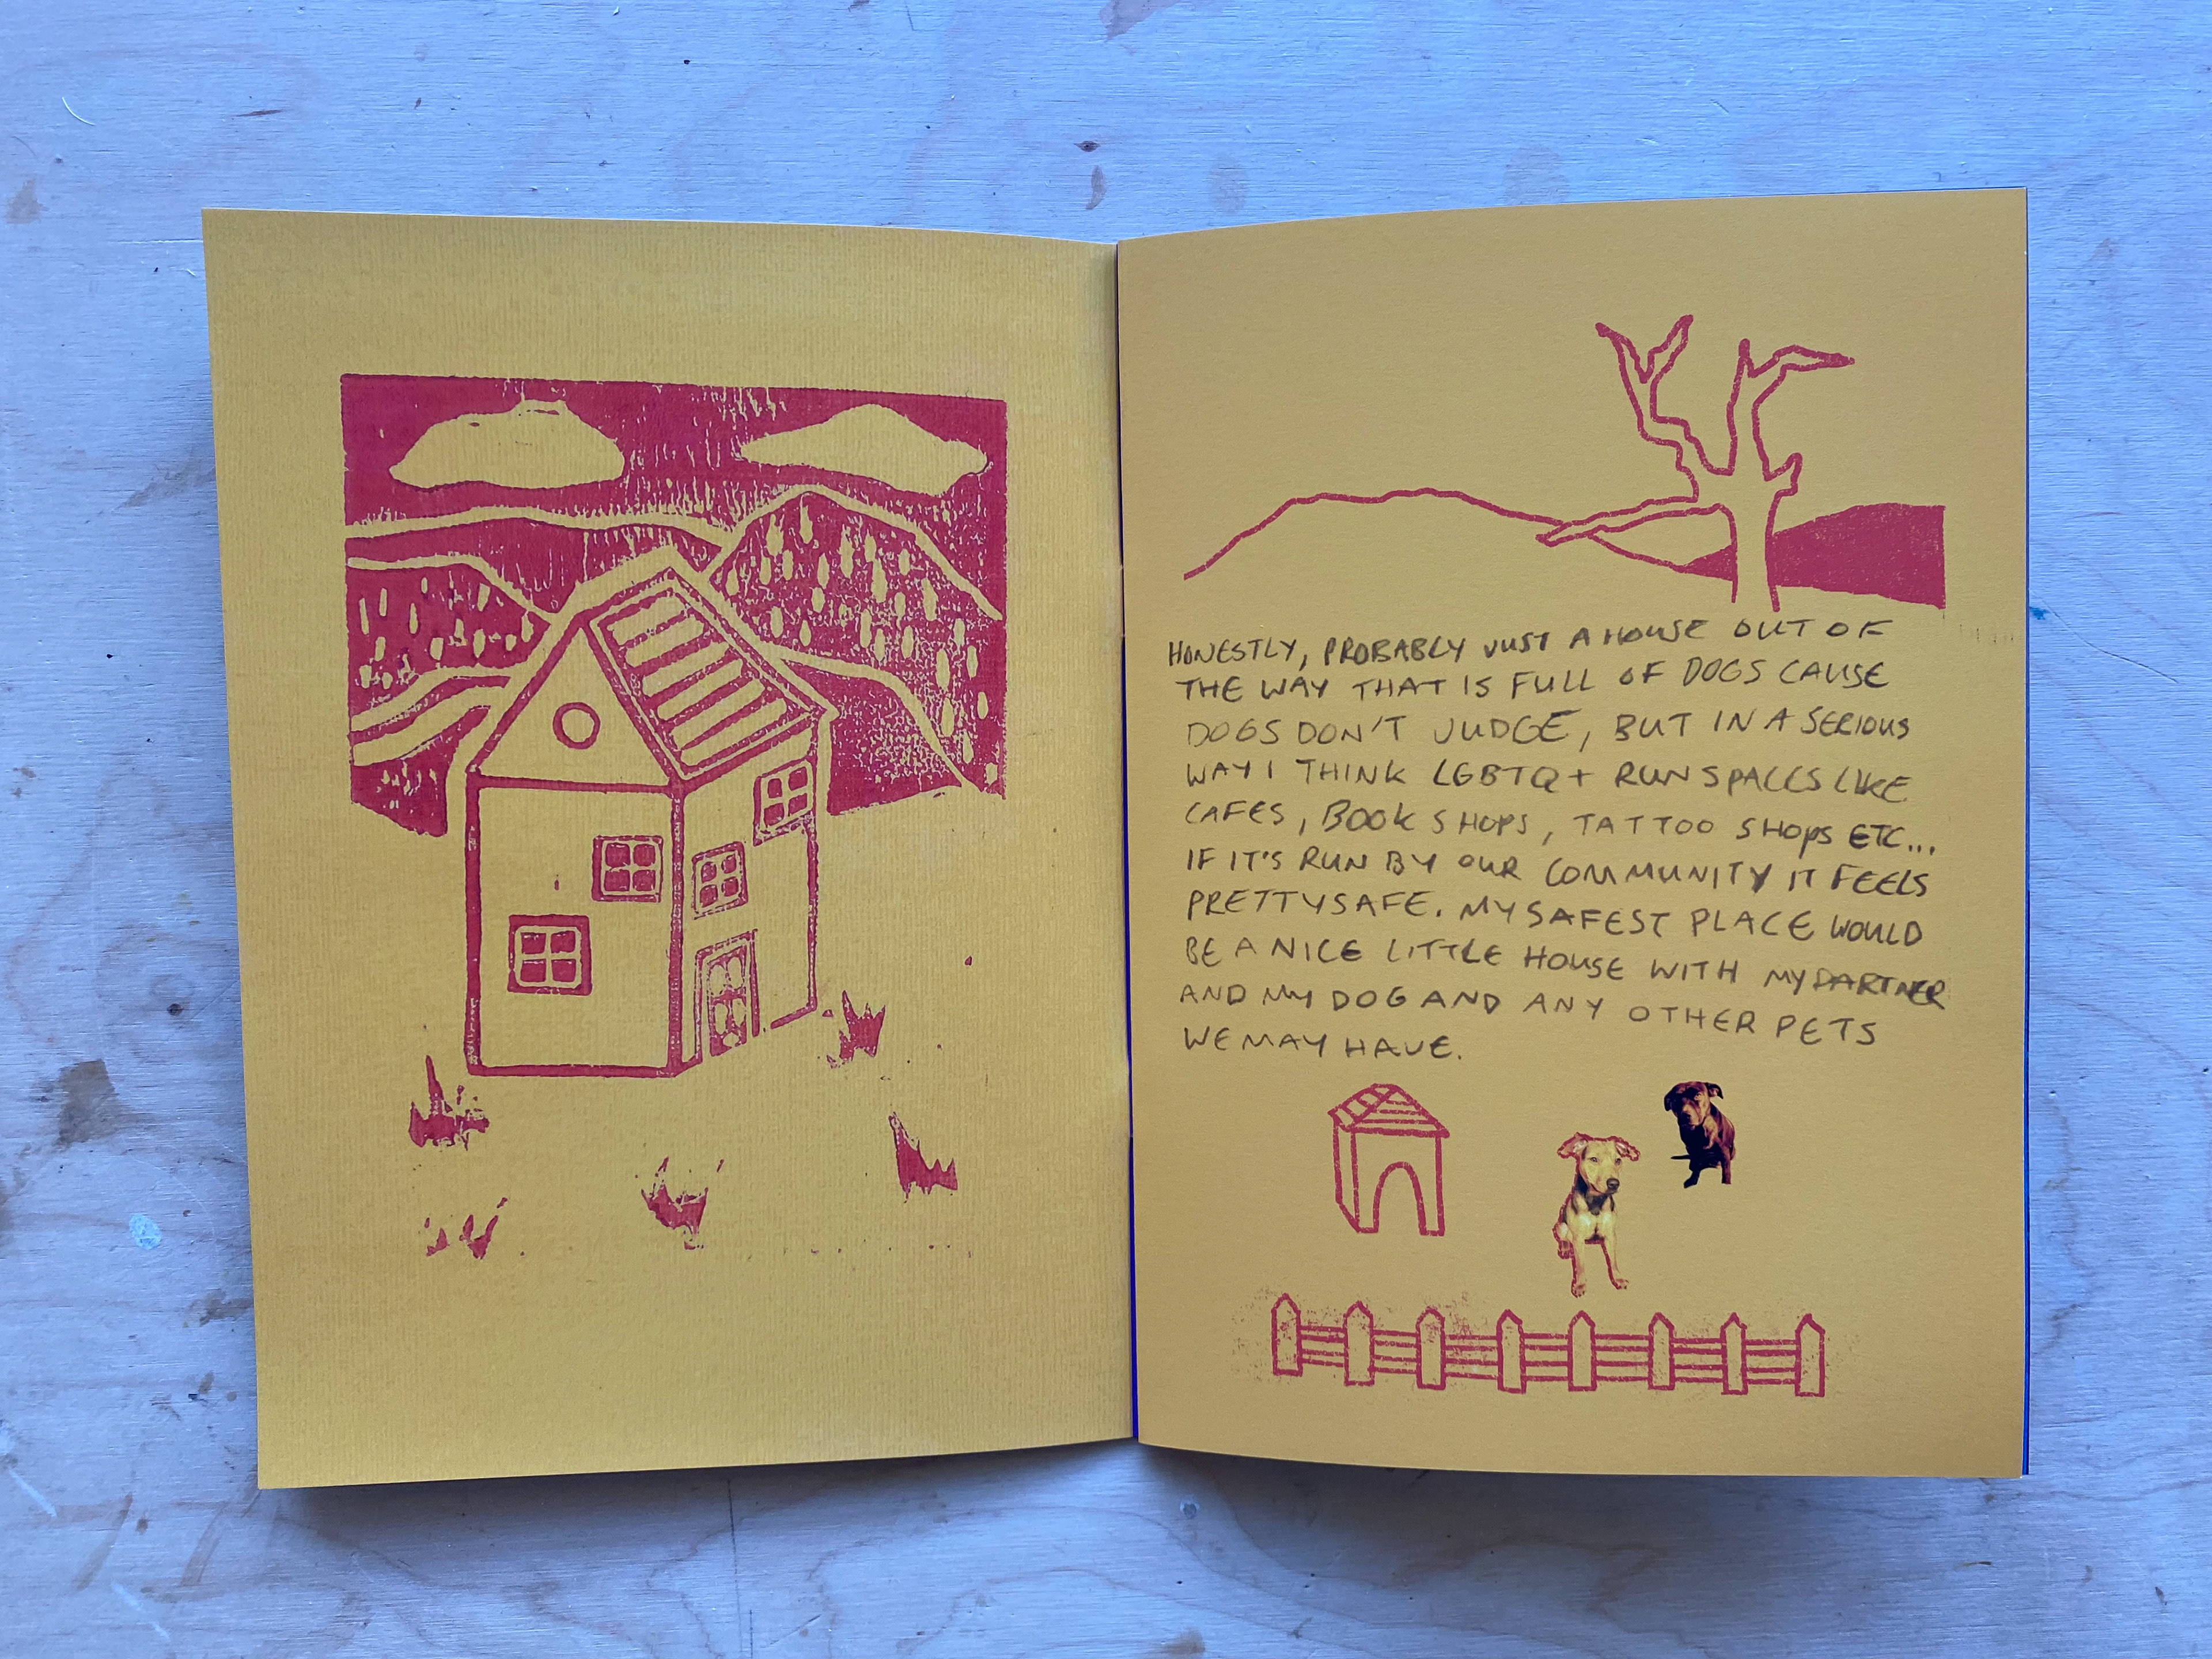 HONESTLY, PROBABLY JUST A HOUSE OUT OF
THE WAY THAT IS FULL OF DOGS CAUSE
DOGS DON'T JUDGE, BUT IN A SERIOUS
WAY I THINK LGBTQ+ RUN SPACES LIKE
CAFES, BOOK SHOPS, TATTOO SHOPS ETC...
IF IT'S RUN BY OUR COMMUNITY IT FEELS
PRETTY SAFE. MY SAFEST PLACE WOULD
BE A NICE LITTLE HOUSE WITH MY PARTNER
AND MY DOG AND ANY OTHER PETS
WE MAY HAVE.